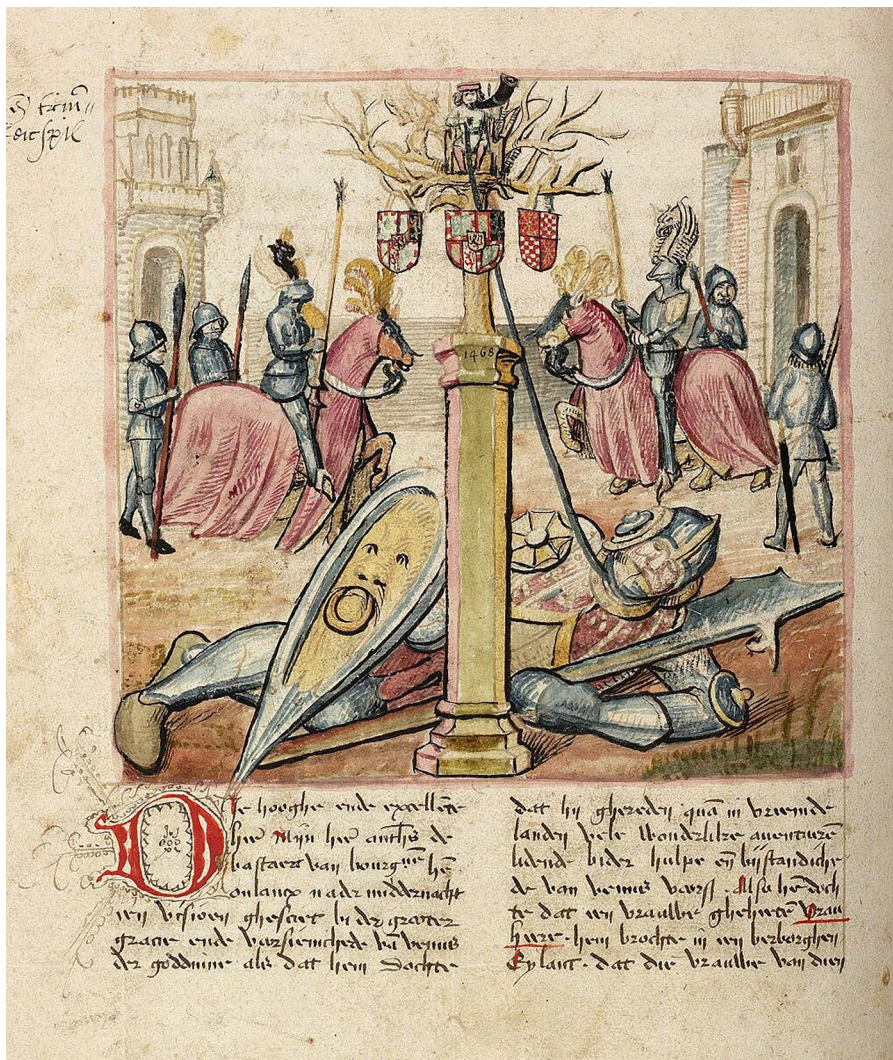 1468
Die hooghe ende excellẽte
hee Mijn hee anthˢ de
bastaert van bourgⁿᵉ hẽ
onlancx nader middernacht
een visioen ghesciet bi der grooter
gracie ende voorsienichede vã venus
der goddinne als dat hem dochte
dat hij ghereden quã in vreemde
landen vele wonderlike auentuerẽ
lidende bider hulpe eñ bijstandiche
de van venus voorsˢ. Also hẽ doch
te dat een vrauwe gheheetẽ vrau
hem brochte in een verborghen
Eylant. dat die vrauwe van dien